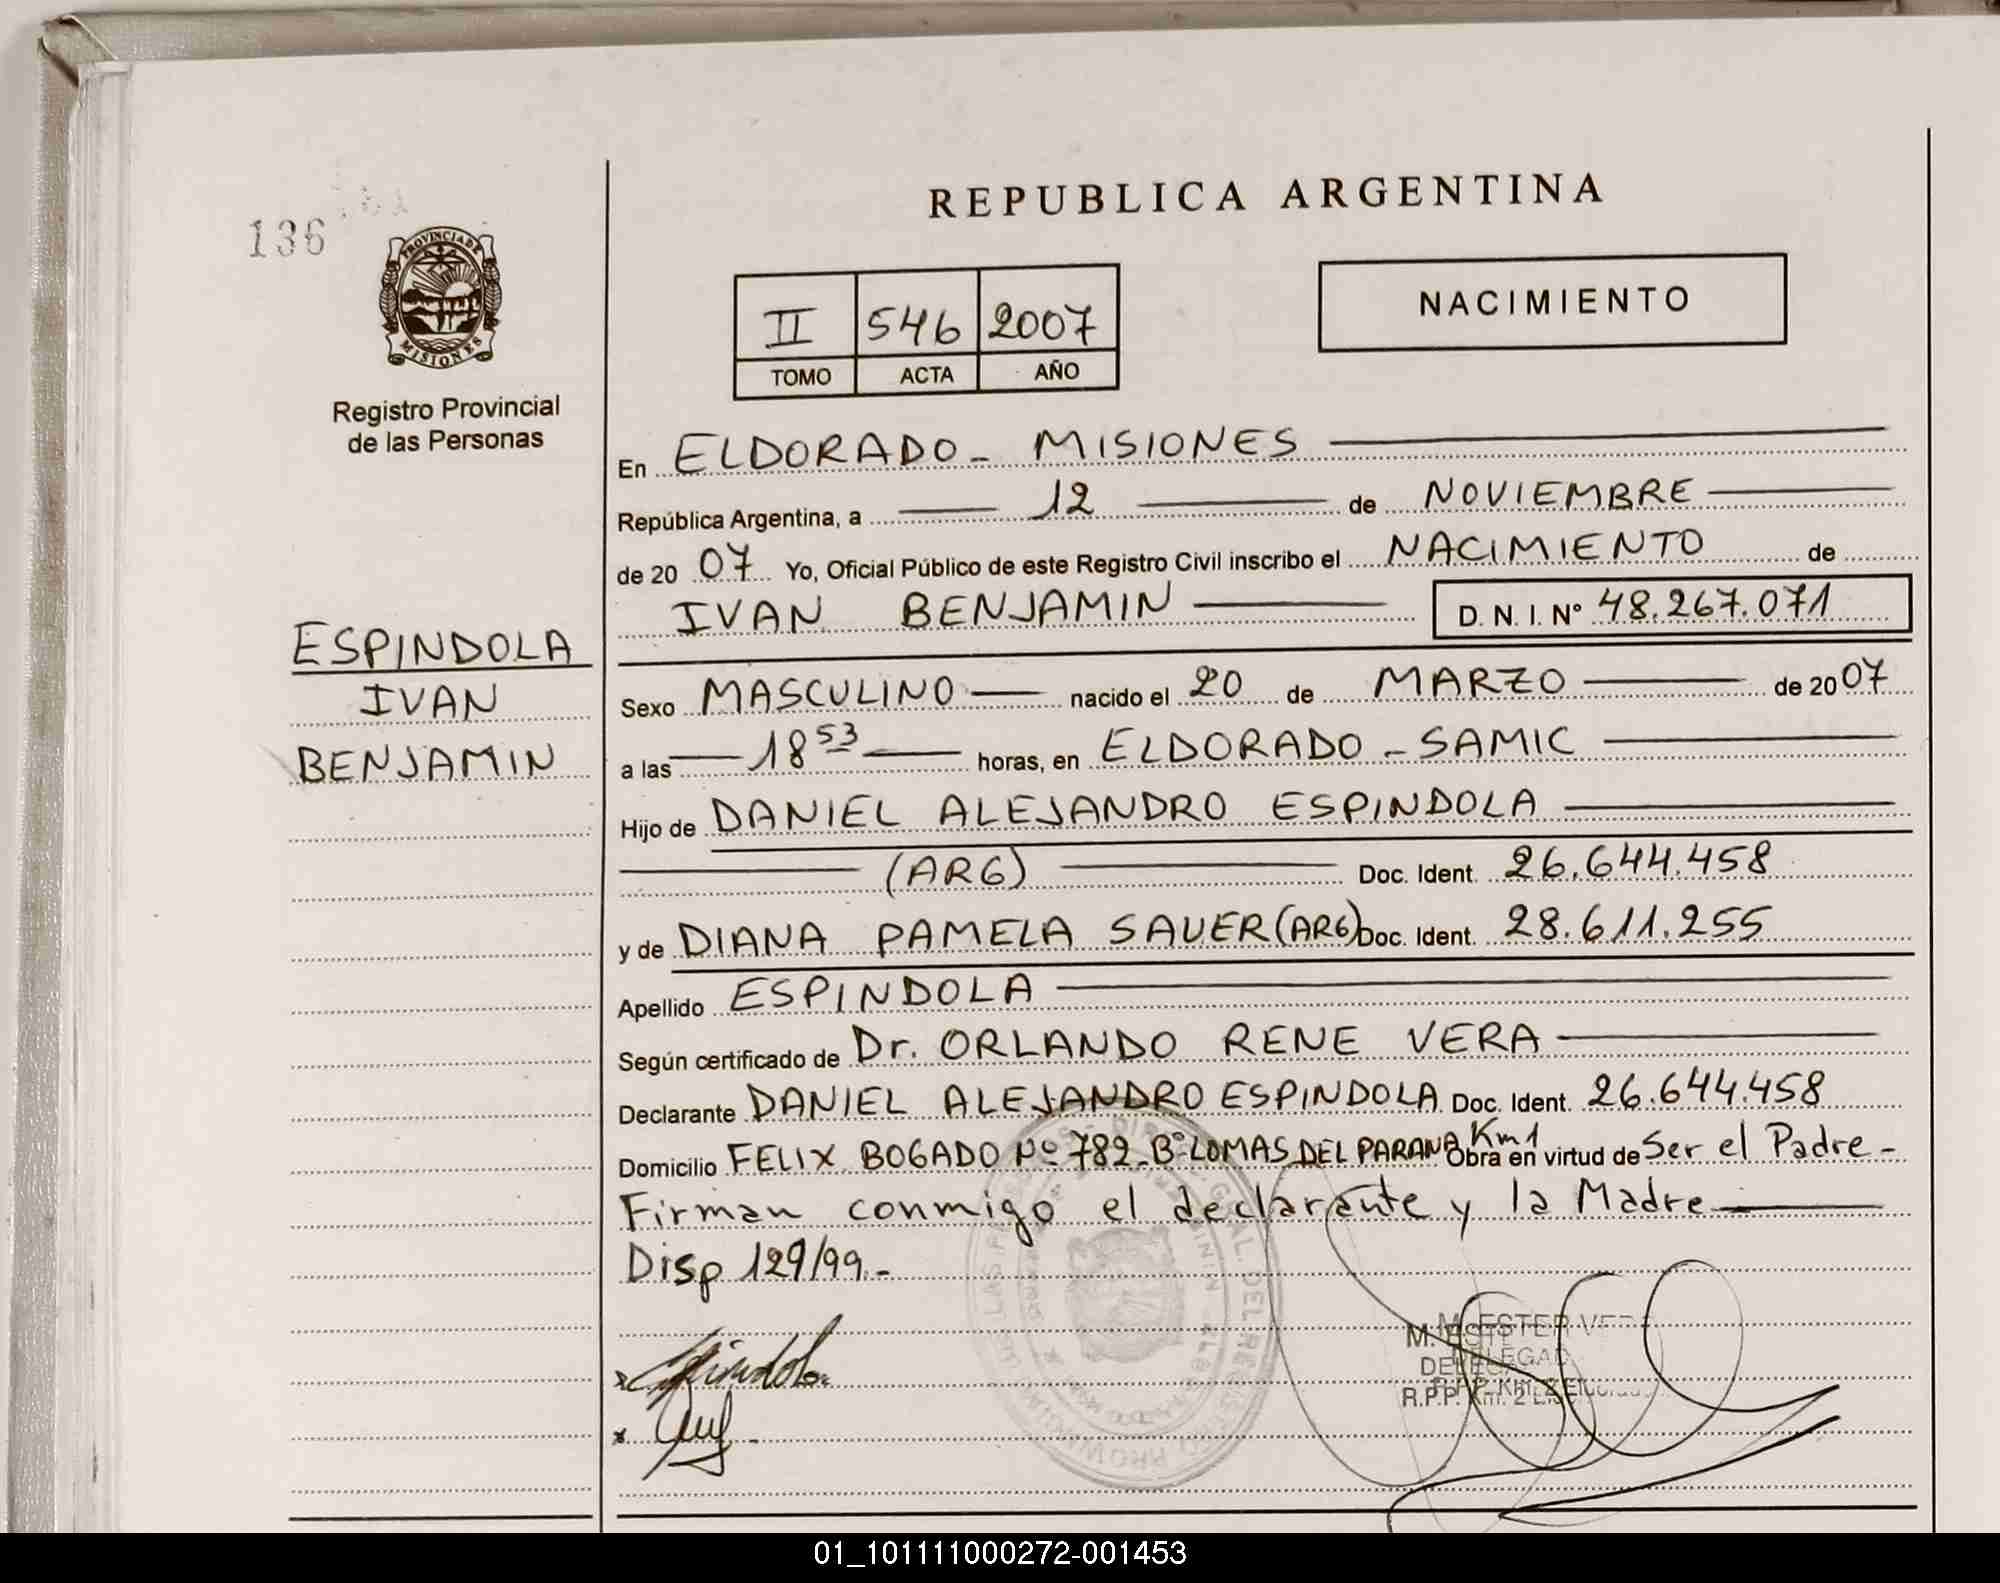 136
PROVINCIA DE
MISIONES
Registro Provincial
de las Personas
ESPINDOLA
IVAN
BENJAMIN
REPUBLICA ARGENTINA
II 546 2007
TOMO ACTA AÑO
NACIMIENTO
En ELDORADO - MISIONES
República Argentina, a 12 de NOVIEMBRE
de 20 07 Yo, Oficial Público de este Registro Civil inscribo el NACIMIENTO de
IVAN BENJAMIN D. N. I. Nº 48.267.071
Sexo MASCULINO nacido el 20 de MARZO de 20 07
a las 18 53 horas, en ELDORADO - SAMIC
Hijo de DANIEL ALEJANDRO ESPINDOLA
(ARG) Doc. Ident. 26.644.458
y de DIANA PAMELA SAUER (ARG) Doc. Ident. 28.611.255
Apellido ESPINDOLA
Según certificado de Dr. ORLANDO RENE VERA
Declarante DANIEL ALEJANDRO ESPINDOLA Doc. Ident. 26.644.458
Domicilio FELIX BOGADO Nº 782 - Bº LOMAS DEL PARANA Km 1 Obra en virtud de Ser el Padre -
Firman conmigo el declarante y la Madre
Disp 129/99.-
Espindola
M. ESTER VERA
R.P.P. Km. 2
01_101111000272-001453